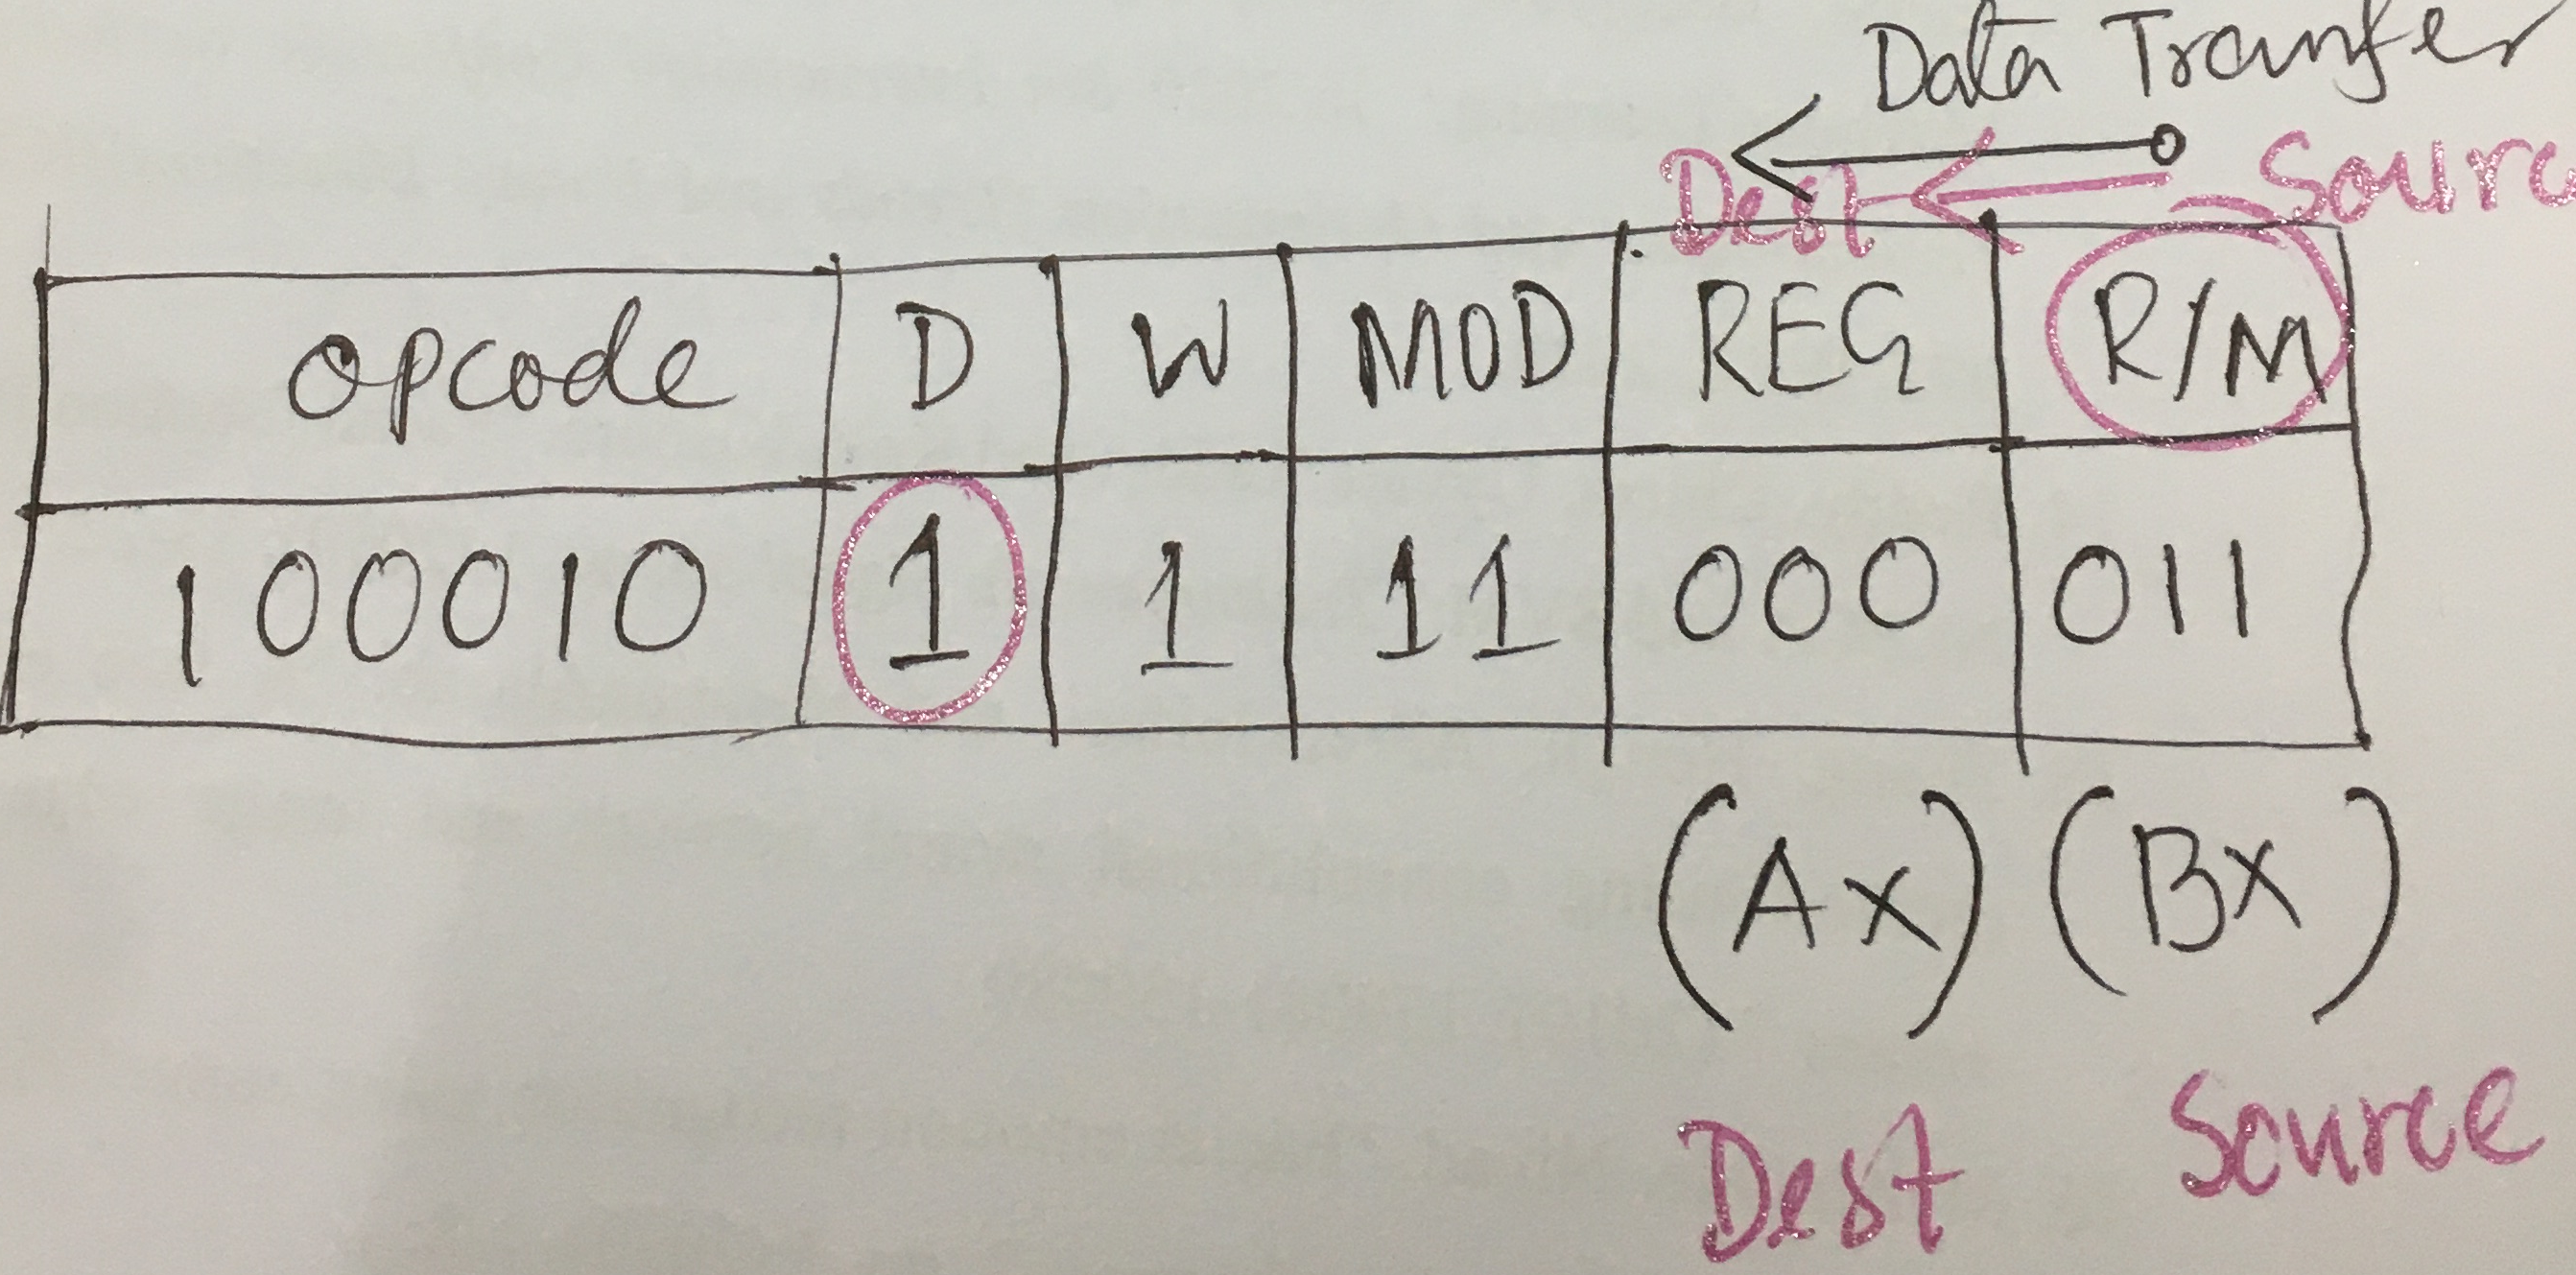 Data Transfer
Dest Sourc
opcode D W MOD REG R/M
100010 1 1 11 000 011
(AX) (BX)
Dest Source